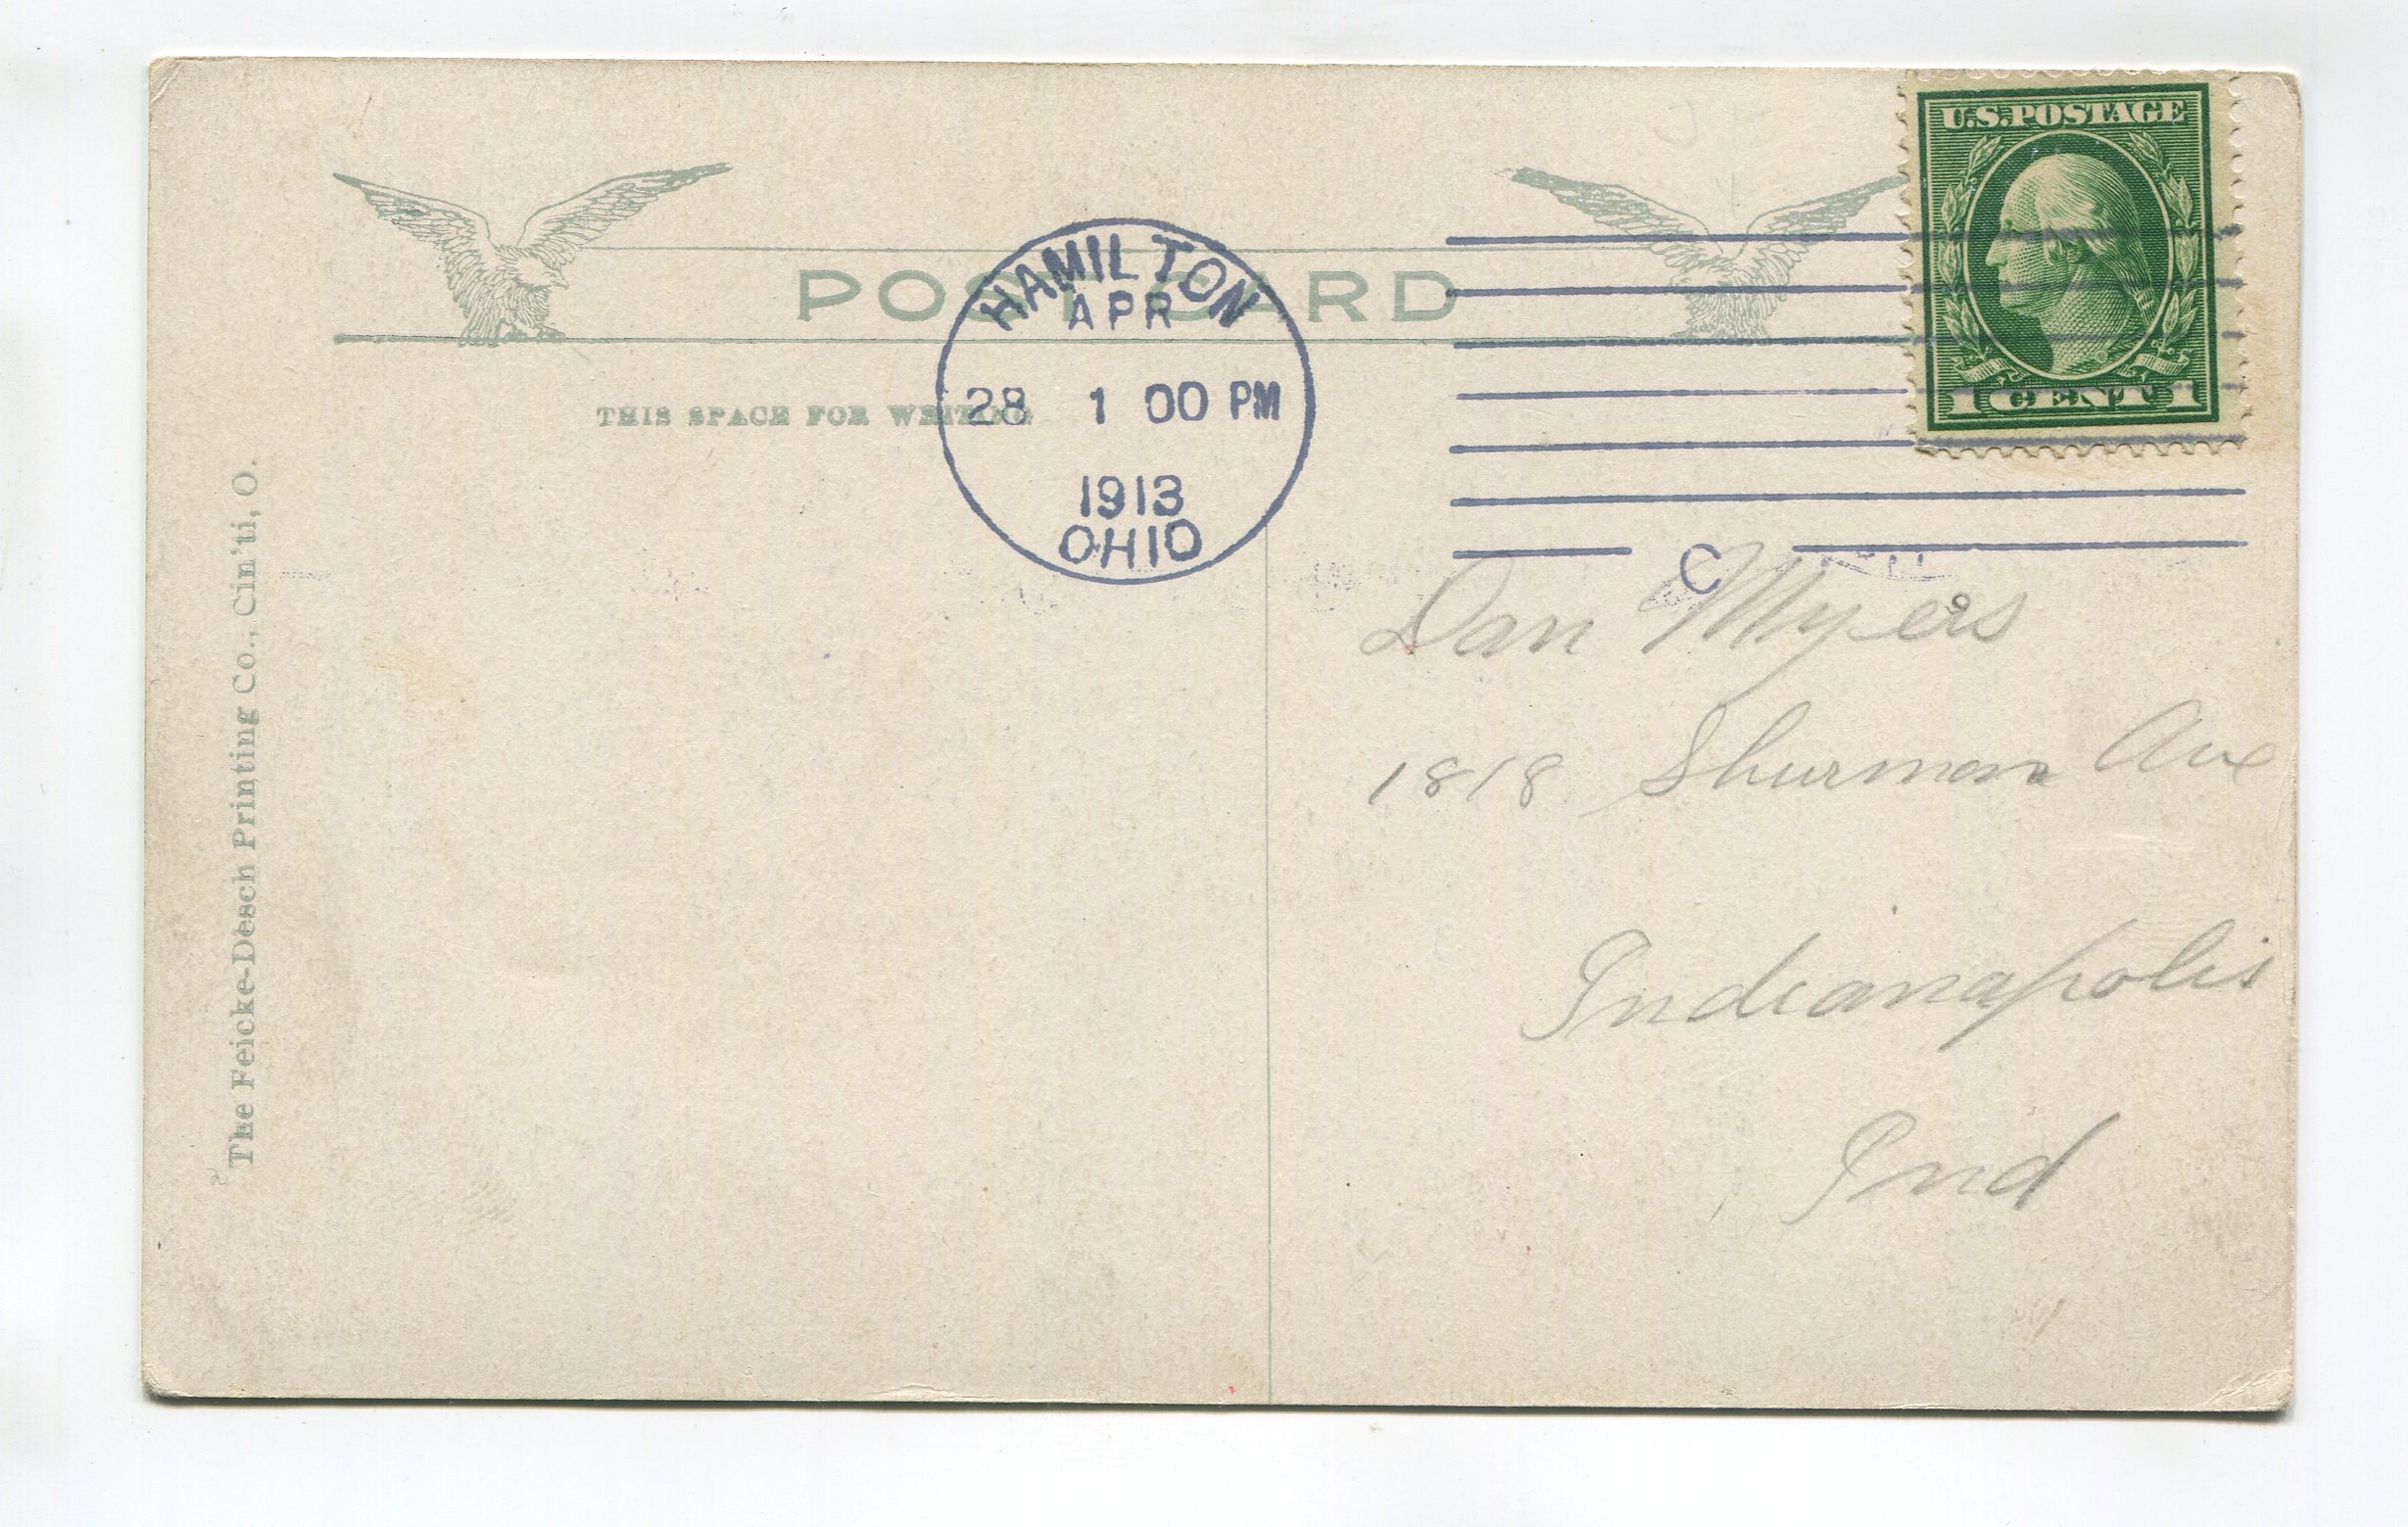 U.S. POSTAGE
1 CENT 1
POST CARD
HAMILTON
APR
28 1 00 PM
1913
OHIO
THIS SPACE FOR WRITING
C
The Feicke-Desch Printing Co., Cin'ti, O.
Dan Myers
1818 Shurman Ave
Indianapolis
Ind